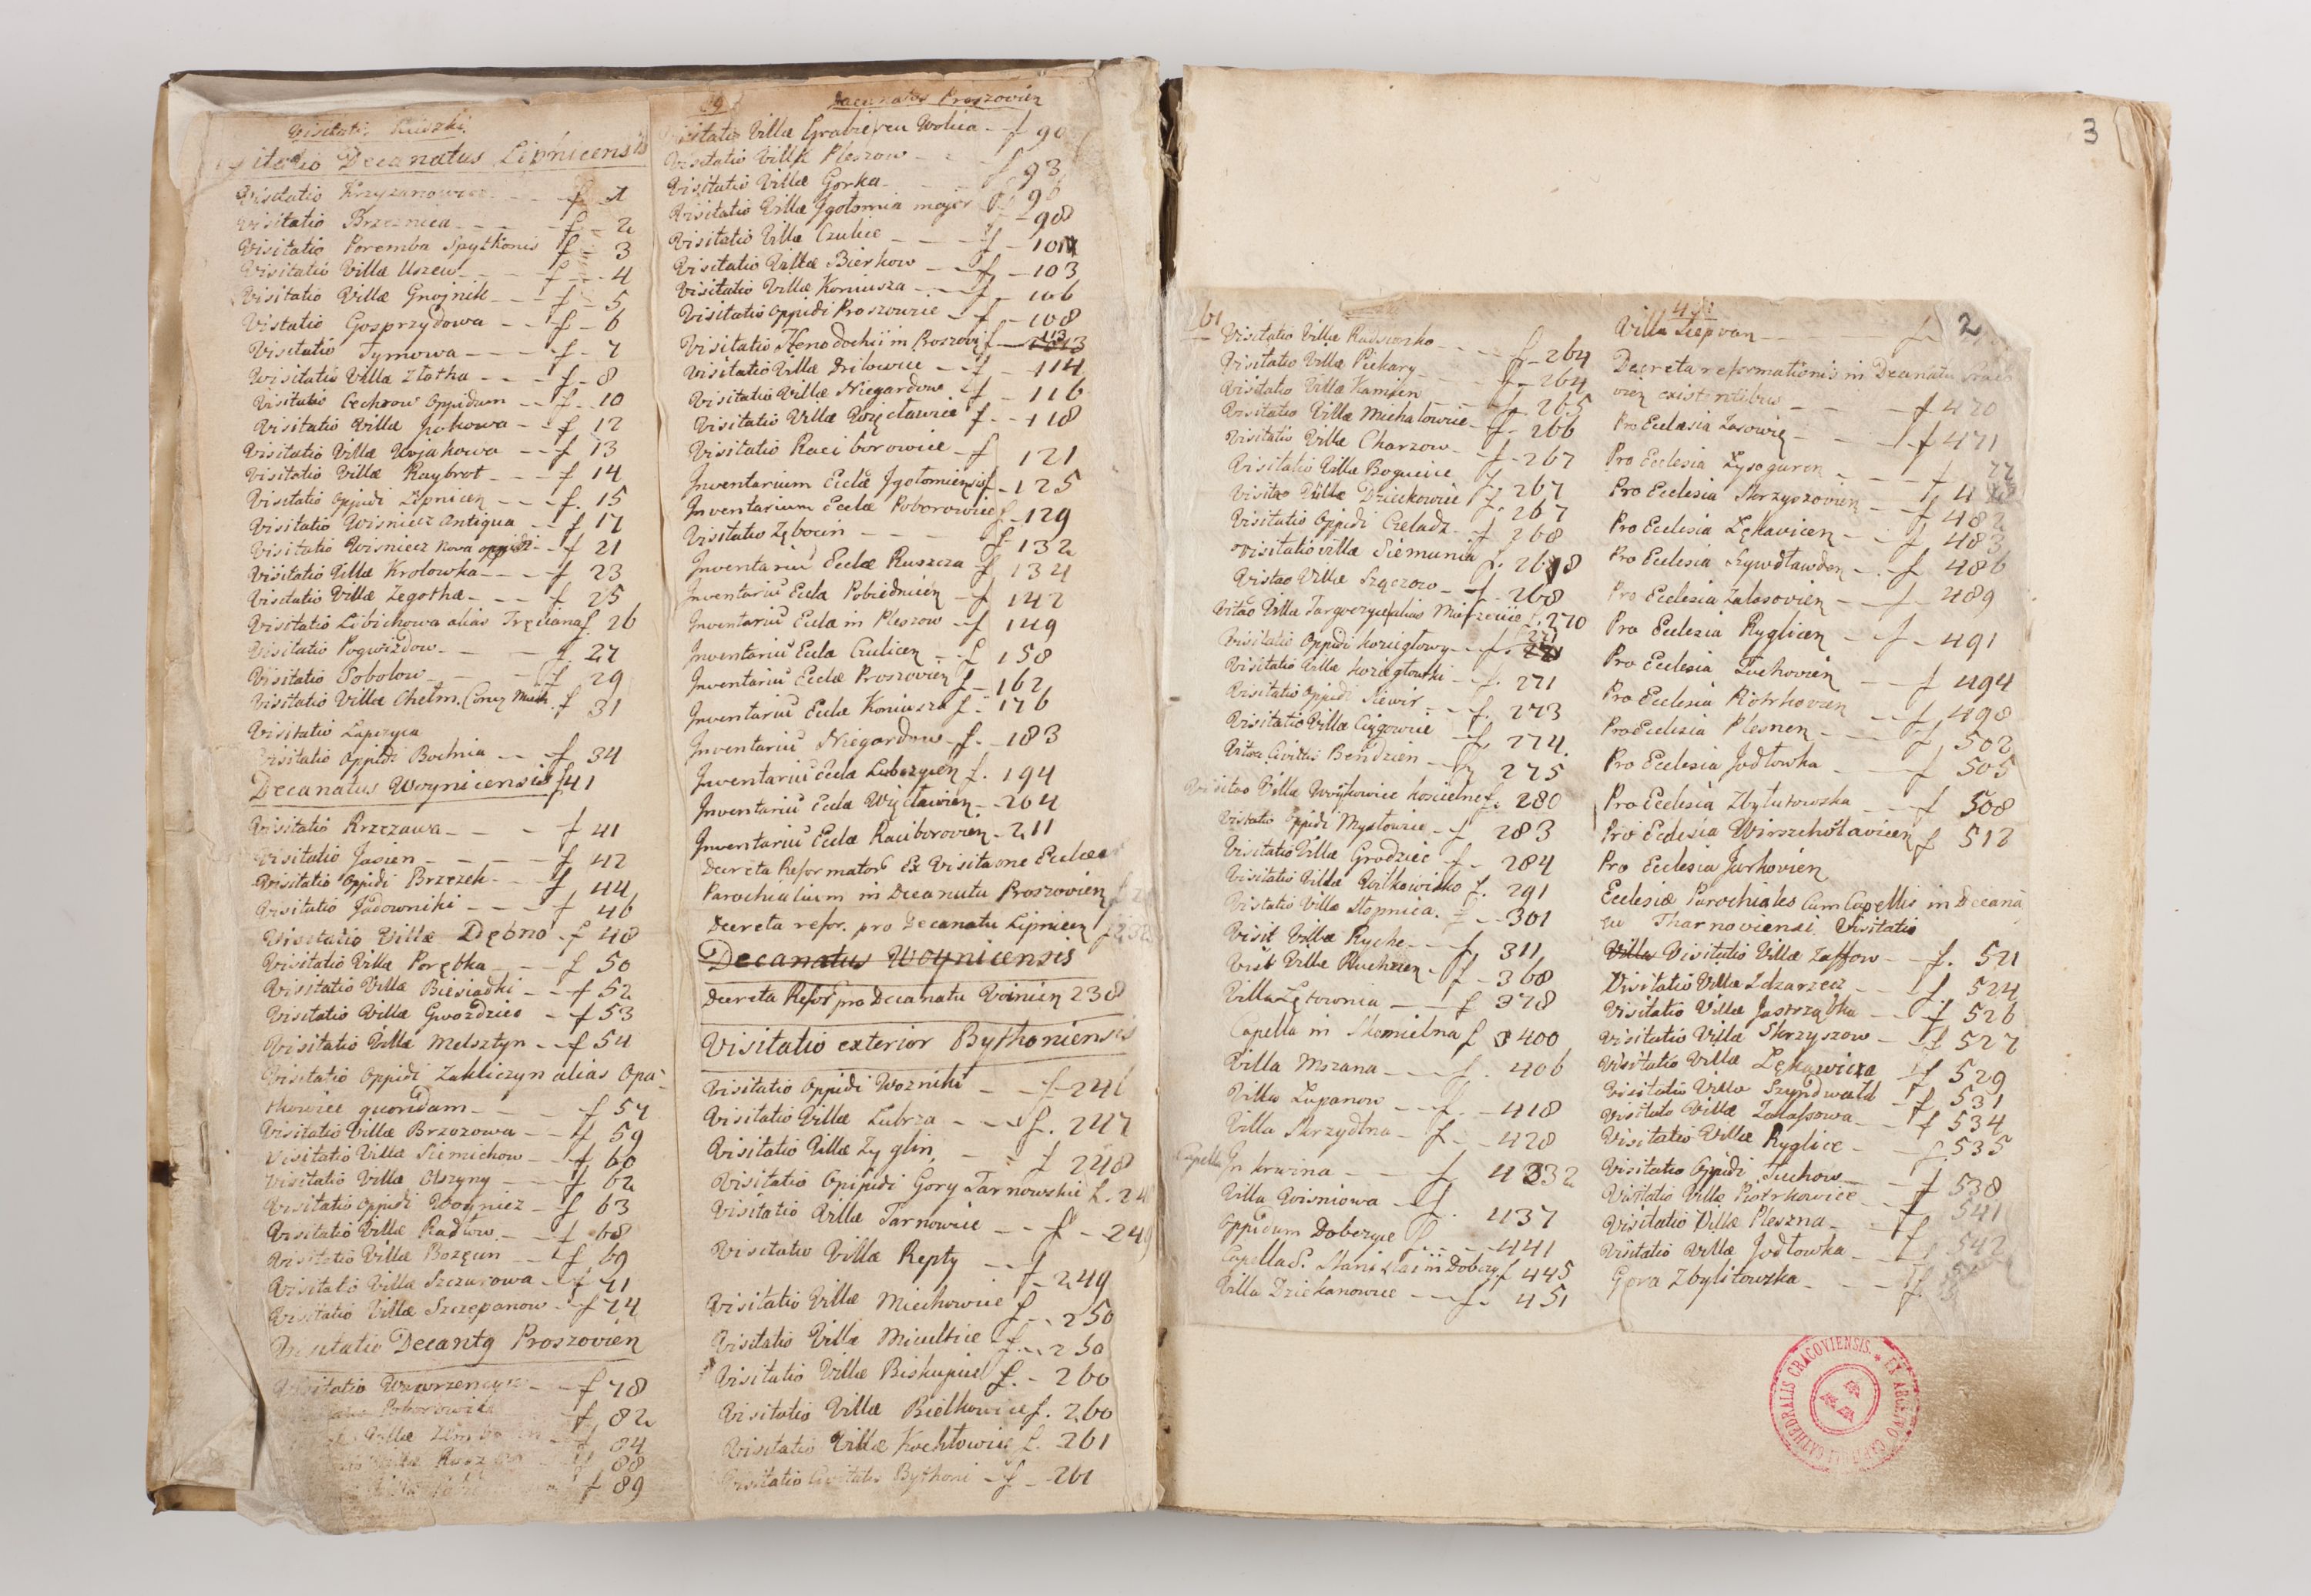 Visitatio Decanatus Lipnicensis
Visitatio Krzyzanowice f 1
Visitatio Brzeznica f 2
Visitatio Poremba Spytkonis f 3
Visitatio Villæ Uszew f 4
Visitatio Villæ Gnojnik f 5
Visitatio Gosprzydowa f 6
Visitatio Tymowa f 7
Visitatio Villa Złotha f 8
Visitatio Cechrow Oppidum f 10
Visitatio Villa Jwkowa f 12
Visitatio Villæ Wojakowa f 13
Visitatio Villæ Raybrot f 14
Visitatio Oppidi Lipnicen f. 15
Visitatio Wisnicz Antiqua f 17
Visitatio Wisnicz Nova oppidi f 21
Visitatio Villæ Krolowka f 23
Visitatio Villæ Zegotha f. 25
Visitatio Libichowa alias Trzciana f. 26
Visitatio Pogwizdow f. 27
Visitatio Sobolow f 29
Visitatio Villæ Chełm f 31
Visitatio Łapczyca
Visitatio Oppidi Bochnia f 34
Decanatus Woynicensis f 41
Visitatio Krzczawa f 41
Visitatio Jasien f 42
Visitatio Oppidi Brzezek f 44
Visitatio Jadowniki f 46
Visitatio Villæ Dębno f 48
Visitatio Villa Porębka f 50
Visitatio Villæ Biesiadki f 52
Visitatio Villæ Gwozdziec f 53
Visitatio Villæ Melsztyn f 54
Visitatio Oppidi Zakliczyn alias Opa-
tkowice quondam f 57
Visitatio Villæ Brzozowa f 59
Visitatio Villa Siemichow f 60
Visitatio Villæ Olszyny f 62
Visitatio Oppidi Woynicz f 63
Visitatio Villæ Radłow f 68
Visitatio Villæ Bozęcin f 69
Visitatio Villa Szczurowa f 71
Visitatio Villæ Szczepanow f 74
Visitatio Decantg Proszovien
Visitatio Wawrzenczyce f 78
f 82
f 84
f 88
f 89
Decanatus Proszovien
Visitatio Villæ Grabie seu Wolica f 90
Visitatio Villæ Pleszow f 93
Visitatio Villæ Gorka f 96
Visitatio Villæ Jgołomia major f 98
Visitatio Villæ Czulice f 101
Visitatio Villæ Bierkow f 103
Visitatio Villæ Koniusza f 106
Visitatio Oppidi Proszowice f 108
Visitatio Xenodochii in Proszowi f 113
Visitatio Villæ f 114
Visitatio Villæ Niegardow f 116
Visitatio Villæ Więcławice f 118
Visitatio Raciborowice f 121
Inventarium Eclæ Jgołomiensis f 125
Inventarium Eclæ Poborowice f 129
Visitatio Zębocin f 132
Inventariu Eclæ Ruszcza f 134
Inventariu Ecla Pobiednicen f 142
Inventariu Ecla in Pleszow f 149
Inventariu Ecla Czulicen f 158
Inventariu Eclæ Proszovien f 162
Inventariu Eclæ Koniusza f 176
Inventariu Niegardow f. 183
Inventariu Ecla Luborzycen f. 194
Inventariu Ecla Więcławien 204
Inventariu Eclæ Raciborovien 211
Decreta Reformator Ex Visitaone Eccleæ
Parochialium in Decanatu Proszovien f
Decreta refor. pro Decanatu Lipnicen f 232
Decanatus Woynicensis
Decreta Refor pro Decanatu Voinicen 238
Visitatio exterior Bythoniensis
Visitatio Oppidi Wozniki f 246
Visitatio Villæ Lubsza f. 247
Visitatio Villæ Zyglin f 248
Visitatio Opipidi Gory Tarnowskie f. 24
Visitatio Villæ Tarnowice f 249
Visitatio Villæ Repty f 249
Visitatio Villæ Miechowice f 250
Visitatio Villæ Micultice f 250
Visitatio Villæ Biskupice f. 260
Visitatio Villæ Bielkowice f. 260
Visitatio Villæ Kochłowice f. 261
Visitatio Civitatis Bythoni f 261
3
Visitatio Villæ Radsionko f 264
Visitatio Villæ Piekary f 264
Visitatio Villæ Kamien f 265
Visitatio Villæ Michałowice f 266
Visitatio Villæ Charzow f 267
Visitatio Villæ Bogucice f 267
Visitao Villæ Dzieckowice f. 267
Visitatio Oppidi Czeladz f 268
Visitatio villæ Siemunia f. 268
Vistao Villæ Sączow f 268
Vitao Villa Targoszyce alias Mierzecice f. 270
Visitatio Oppidi Kozieglowy f. 271
Visitatio Villa Kozieglowki f. 271
Visitatio Oppidi Siewir f. 273
Visitatio Villæ Ciągowice f 274.
Vitao Civitatis Bendzien f 275
Visitao Villæ Woykowice Koscielne f. 280
Visitatio Oppidi Mysłowice f 283
Visitatio Villæ Grodziec f 284
Visitatio Villæ Wilkowisko f. 291
Visitatio Villæ Słopnica f 301
Visit Villæ Ryche f 311
Visit Villæ Ruchcien f 368
Villa Łętownia f 378
Capella in Skomielna f 400
Villa Mszana f 406
Villa Łapanow f 418
Villa Skrzydlna f 428
Capella In Krwina f 432
Villa Wisniowa f. 437
Oppidum Dobczyce f 441
Capella S. Stanislai in Dobczy f 445
Villa Dziekanowice f. 451
Villa f. 2
Decreta reformationis in Decanatu
existentibus f 470
Pro Ecclesia Zasowię f 471
Pro Ecclesia Łysoguren f
Pro Ecclesia Skrzyszovien f 482
Pro Ecclesia Łękavicen f 483
Pro Ecclesia Szywdławden f 486
Pro Ecclesia Zalasovien f 489
Pro Ecclesia Ryglicen f 491
Pro Ecclesia Tuchovien f 494
Pro Ecclesia Piotrkovien f 498
Pro Ecclesia Plesnen f 502
Pro Ecclesia Jodłowka f 505
Pro Ecclesia Zbylutowska f 508
Pro Ecclesia Wirszchosławicen f 512
Pro Ecclesia Jurkovien
Ecclesiæ Parochiales Cum Capellis in Decana
tu Tharnoviensi Visitatio
Villa Visitatio Villæ Zassow f. 521
Visitatio Villæ Zdzarzec f 524
Visitatio Villæ Jastrząbka f 526
Visitatio Villæ Skrzyszow f 527
Visitatio Villæ Łękawica f 529
Visitatio Villa Szyndwald f. 531
Visitatio Villæ Zalassowa f 534
Visitatio Villæ Ryglice f 535
Visitatio Oppidi Tuchow f 538
Visitatio Villæ Piotrkowice f 541
Visitatio Villæ Pleszna f
Visitatio Villæ Jodłowka f 542
Gora Zbylitowska f.
EX ARCHIVO CAPITULI CATHEDRALIS CRACOVIENSIS.